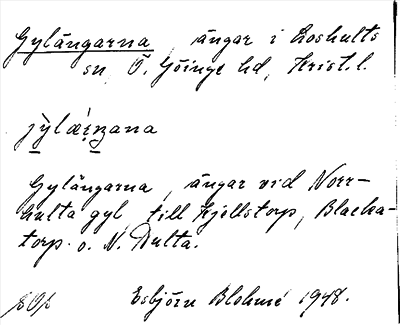 Gylängarna ängar i Loshults
sn, Ö. Göinge hd, Krist. l.
Gylängarna, ängar vid Norr-
hulta gyl, till Kjellstorp, Blacka-
torp o. N. Hulta.
Esbjörn Blohmé 1948.